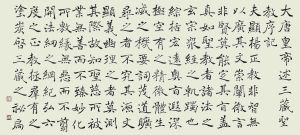 大唐皇帝述三藏聖
教序記
夫顯揚正教非智無
以廣其文崇闡微言
非賢莫能定其旨蓋
真如聖教者諸法之
玄宗眾經之軌躅也
綜括宏遠奧旨遐深
極空有之精微體生
滅之機要詞茂道曠
尋之者不究其源文
顯義幽履之者莫測
其際故知聖慈所被
業無善而不臻妙化
所敷緣無惡而不剪
開法網之綱紀弘六
度之正教拯群有之
塗炭啟三藏之秘扃